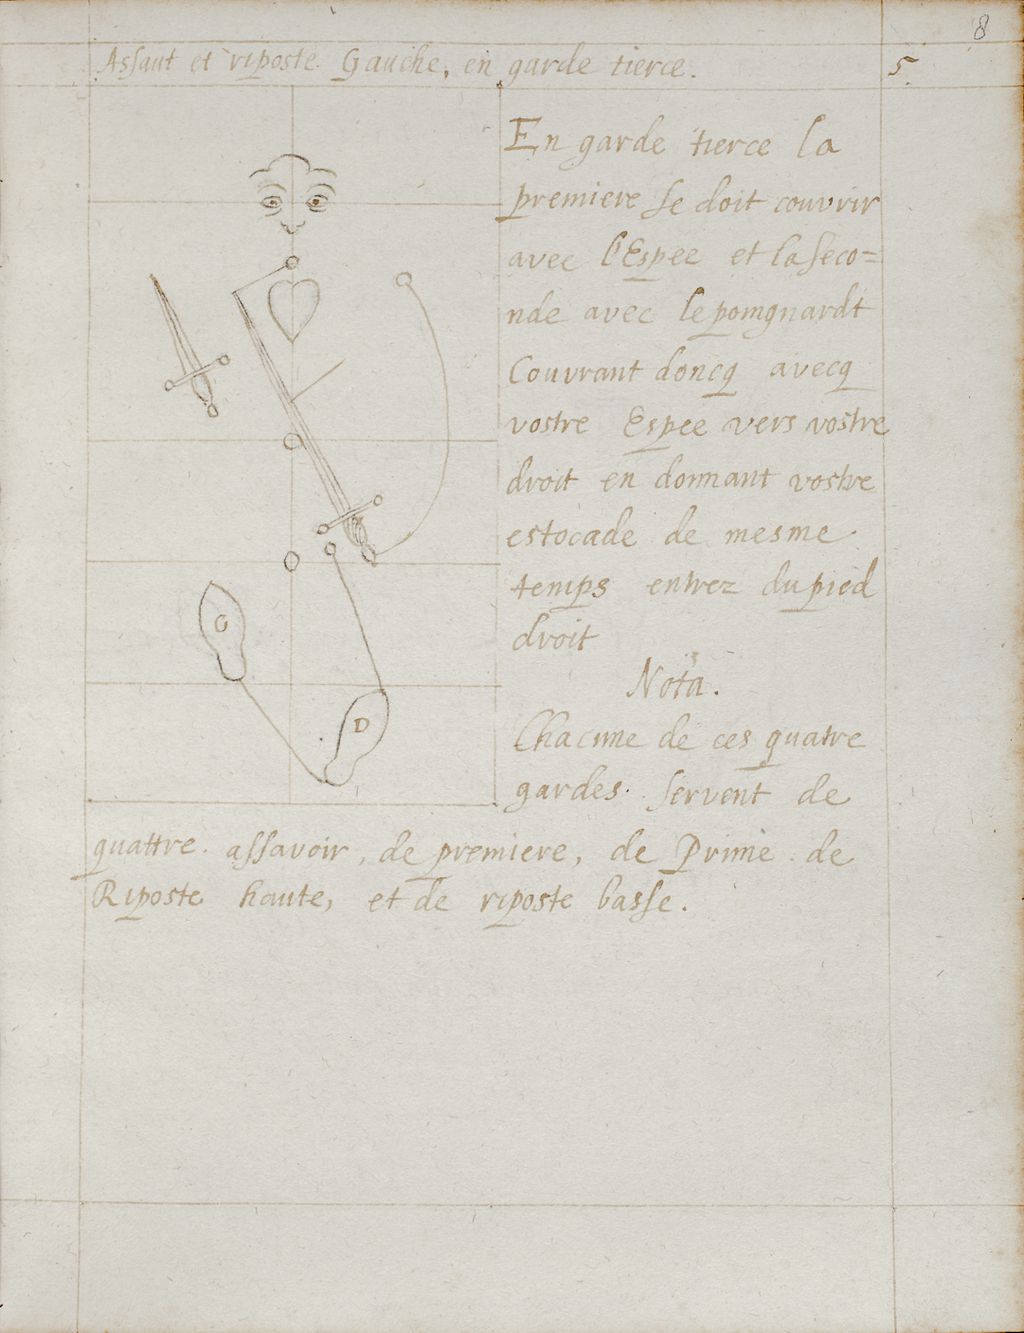 8
Assaut et riposte Gauche, en garde tierce. 5.
En garde tierce la
premiere se doit couvrir
avec l'Espee et la seco=
nde avec le pomgnardt
Couvrant doncq avecq
vostre Espee vers vostre
droit en donnant vostre
estocade de mesme
temps entrez du pied
droit
Nota.
Chacune de ces quatre
gardes. servent de
quattre. assavoir, de premiere, de Prime de
Riposte haute, et de riposte basse.
G
D